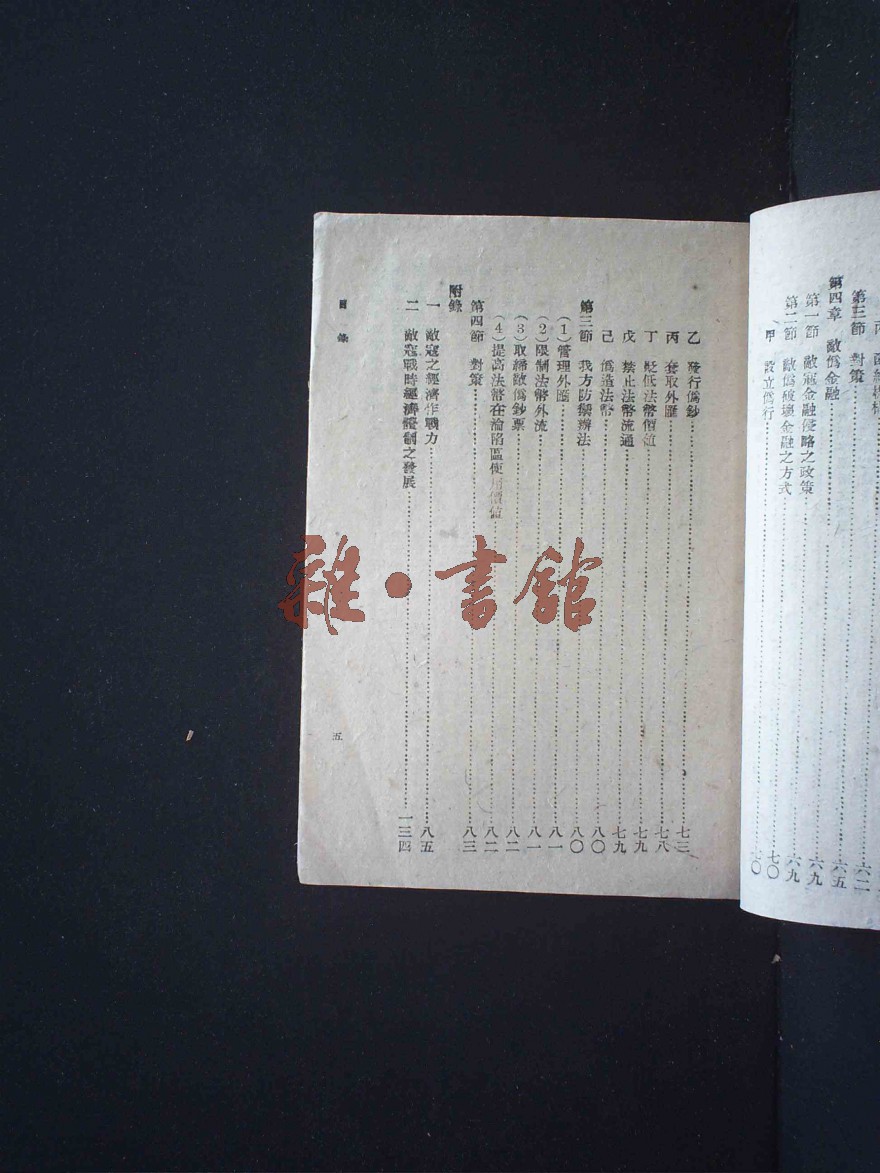 第三節　對策……六二
第四章　敵僞金融……六五
第一節　敵寇金融侵略之政策……六九
第二節　敵僞破壞金融之方式……六九
甲　設立僞行……七〇
七〇
乙　發行僞鈔……七三
丙　套取外匯……七八
丁　貶低法幣價值……七九
戊　禁止法幣流通……七九
己　僞造法幣……八〇
第三節　我方防禦辦法……八〇
（1）管理外匯……八一
（2）限制法幣外流……八一
（3）取締敵僞鈔票……八二
（4）提高法幣在淪陷區使用價值……八二
第四節　對策……八三
附錄
一　敵寇之經濟作戰力……八五
二　敵寇戰時經濟體制之發展……一三四
目錄
五
雜·書館